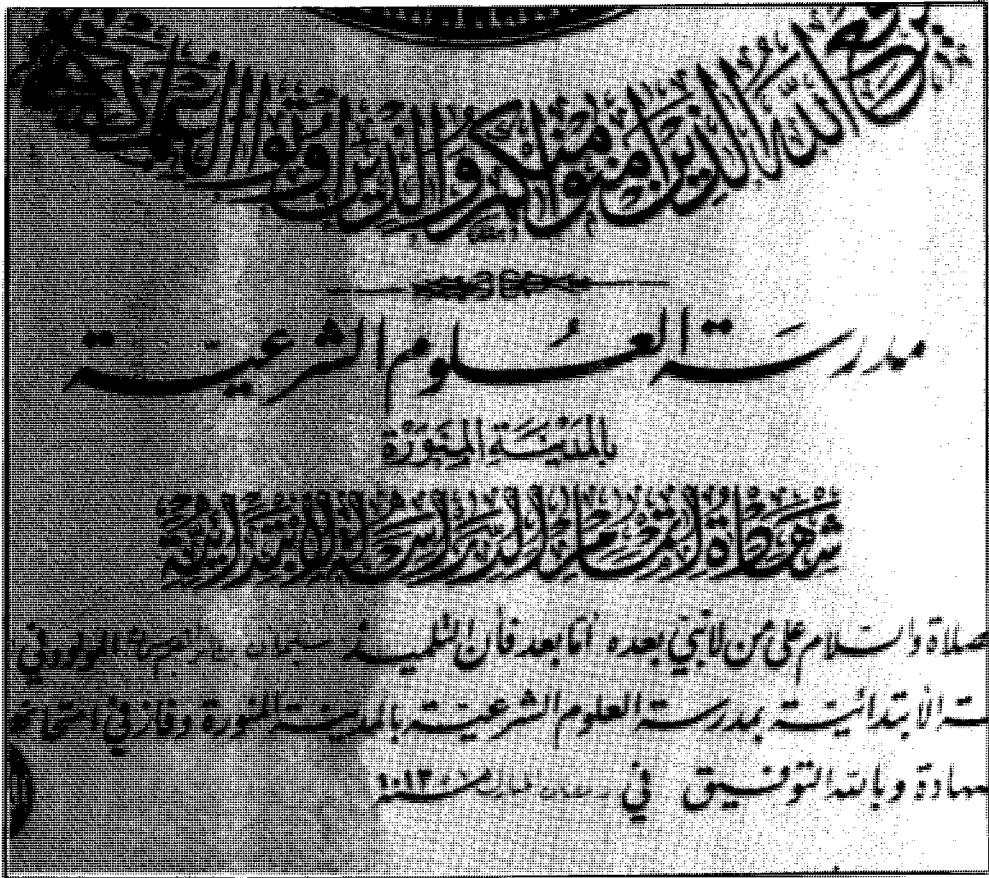 يرفع الله الذين آمنوا منكم والذين أوتوا العلم
مدرسة العلوم الشرعية
بالمدينة المنورة
شهادة إتمام الدراسة الابتدائية
صلاة والسلام على من لا نبي بعده أما بعد فأن التلميذ سليمان المولود في
ـة الابتدائية بمدرسة العلوم الشرعية بالمدينة المنورة وفاز في امتحانه
ـهادة وبالله التوفيق في